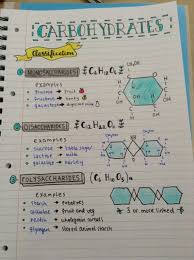 CARBOHYDRATES
Classification
① MONOSACCHARIDES { C6 H12 O6 }
examples
glucose → fruit
fructose → honey
galactose →
CH2OH
② DISACCHARIDES { C12 H22 O11 }
examples
sucrose → table sugar
lactose → milk
maltose → barley
③ POLYSACCHARIDES (C6 H10 O5)n
examples
starch → potatoes
cellulose → fruit and veg
pectin → wholegrain cereals
glycogen → stored animal starch
3 or more linked